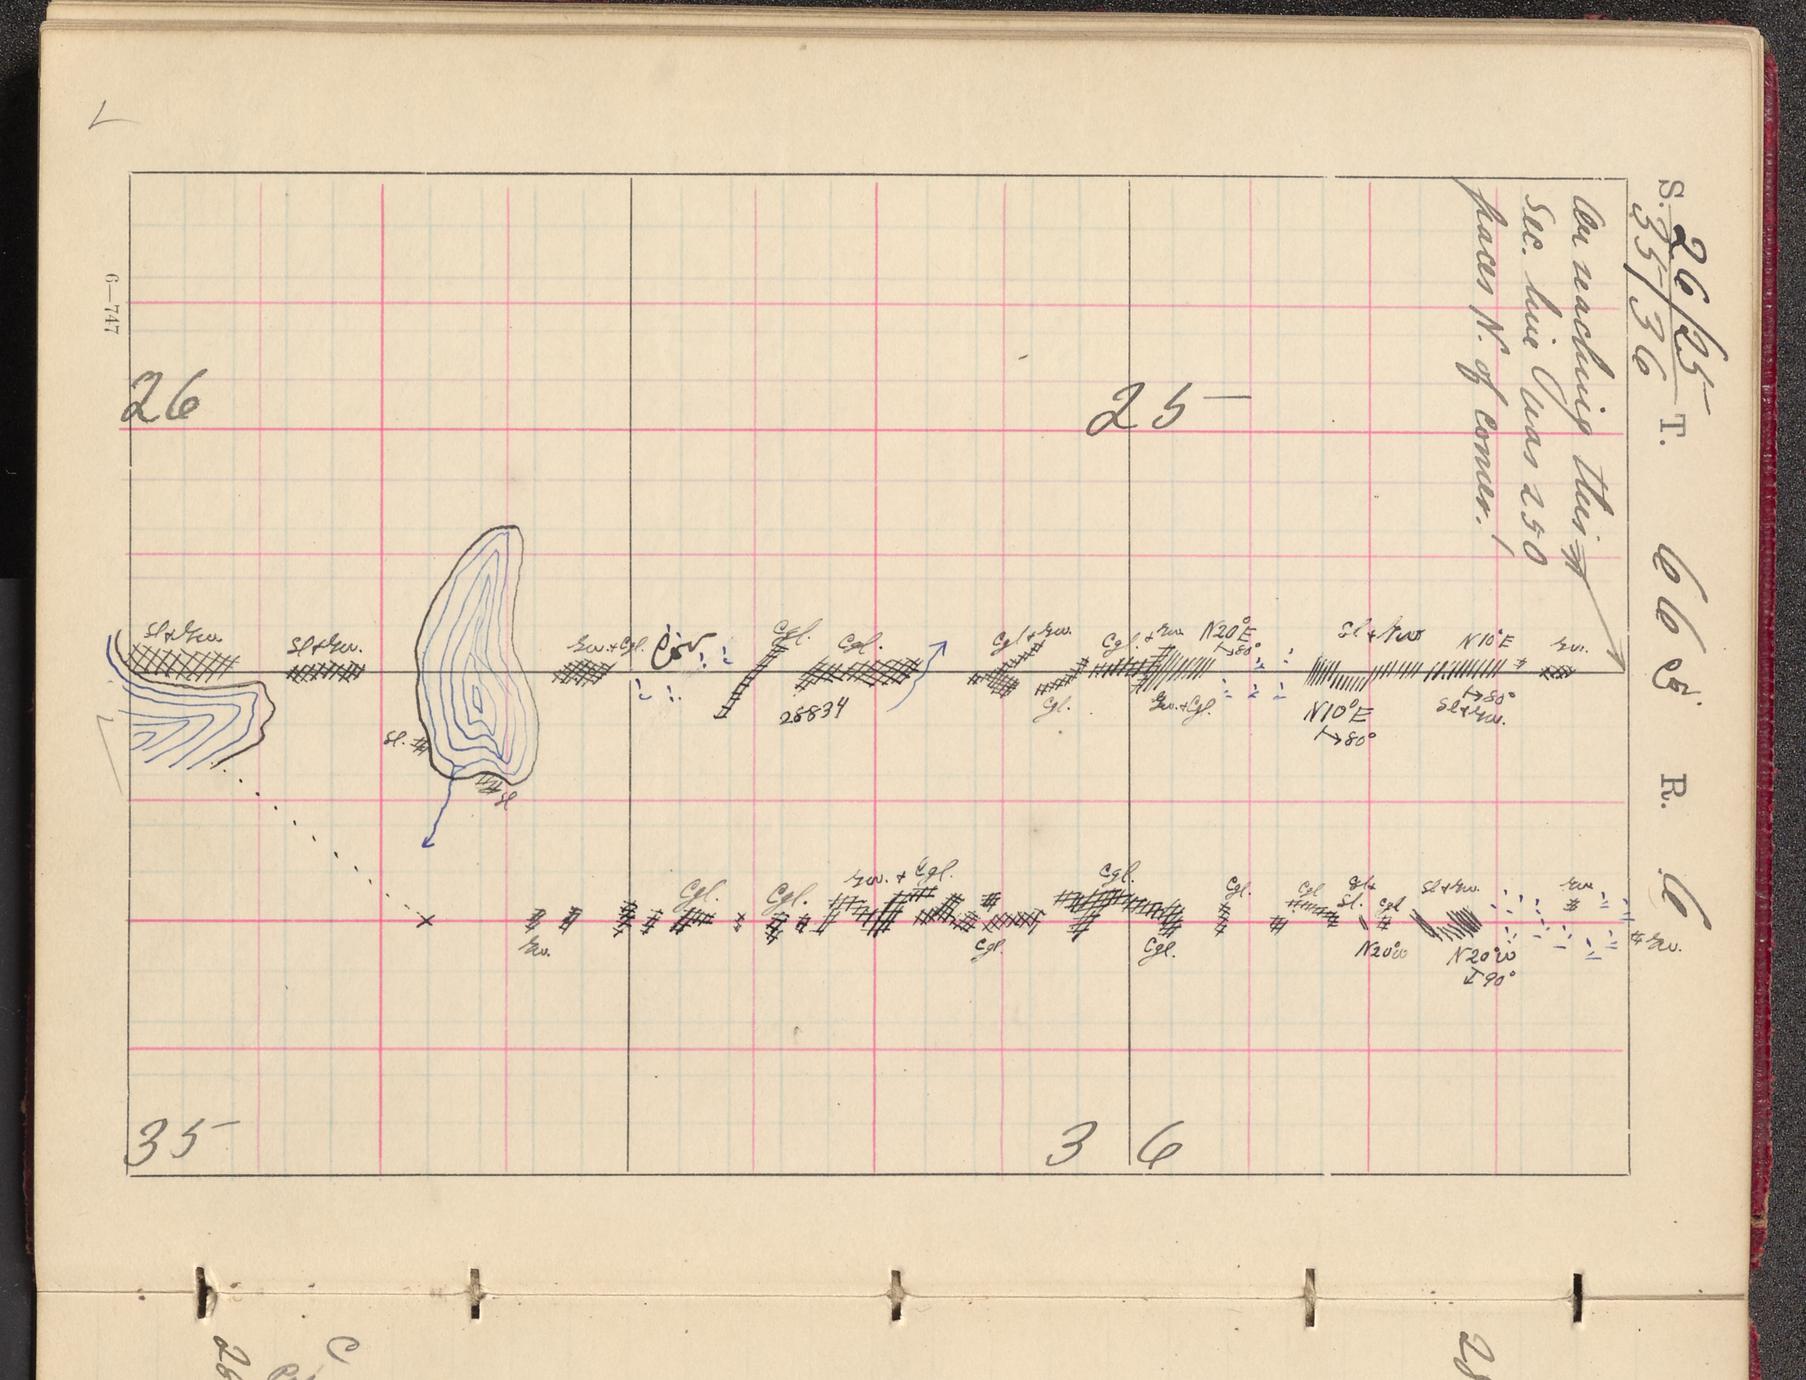 S. 26/25 T. 66 R. 6
35/36
On reaching this
Sec. line I was 250
paces N. of corner.
6—747
26
25
Sl+Gw.
Sl+Gw.
Gw.+Cgl.
Cor
Cgl.
Cgl.
Cgl+Gw.
Cgl.+Gw.
N20°E
80°
Sl+Gw
N10°E
Gw.
28834
Cgl.
Gw.+Cgl.
N10°E
80°
80°
Sl+Gw.
Sl.
Sl
Cgl.
Cgl.
Gw. + Cgl.
Cgl.
Cgl.
Cgl
Sl.
Cgl
Sl+Gw.
Gw.
Gw.
Cgl.
Cgl.
N20W
N20°W
90°
Gw.
35
36